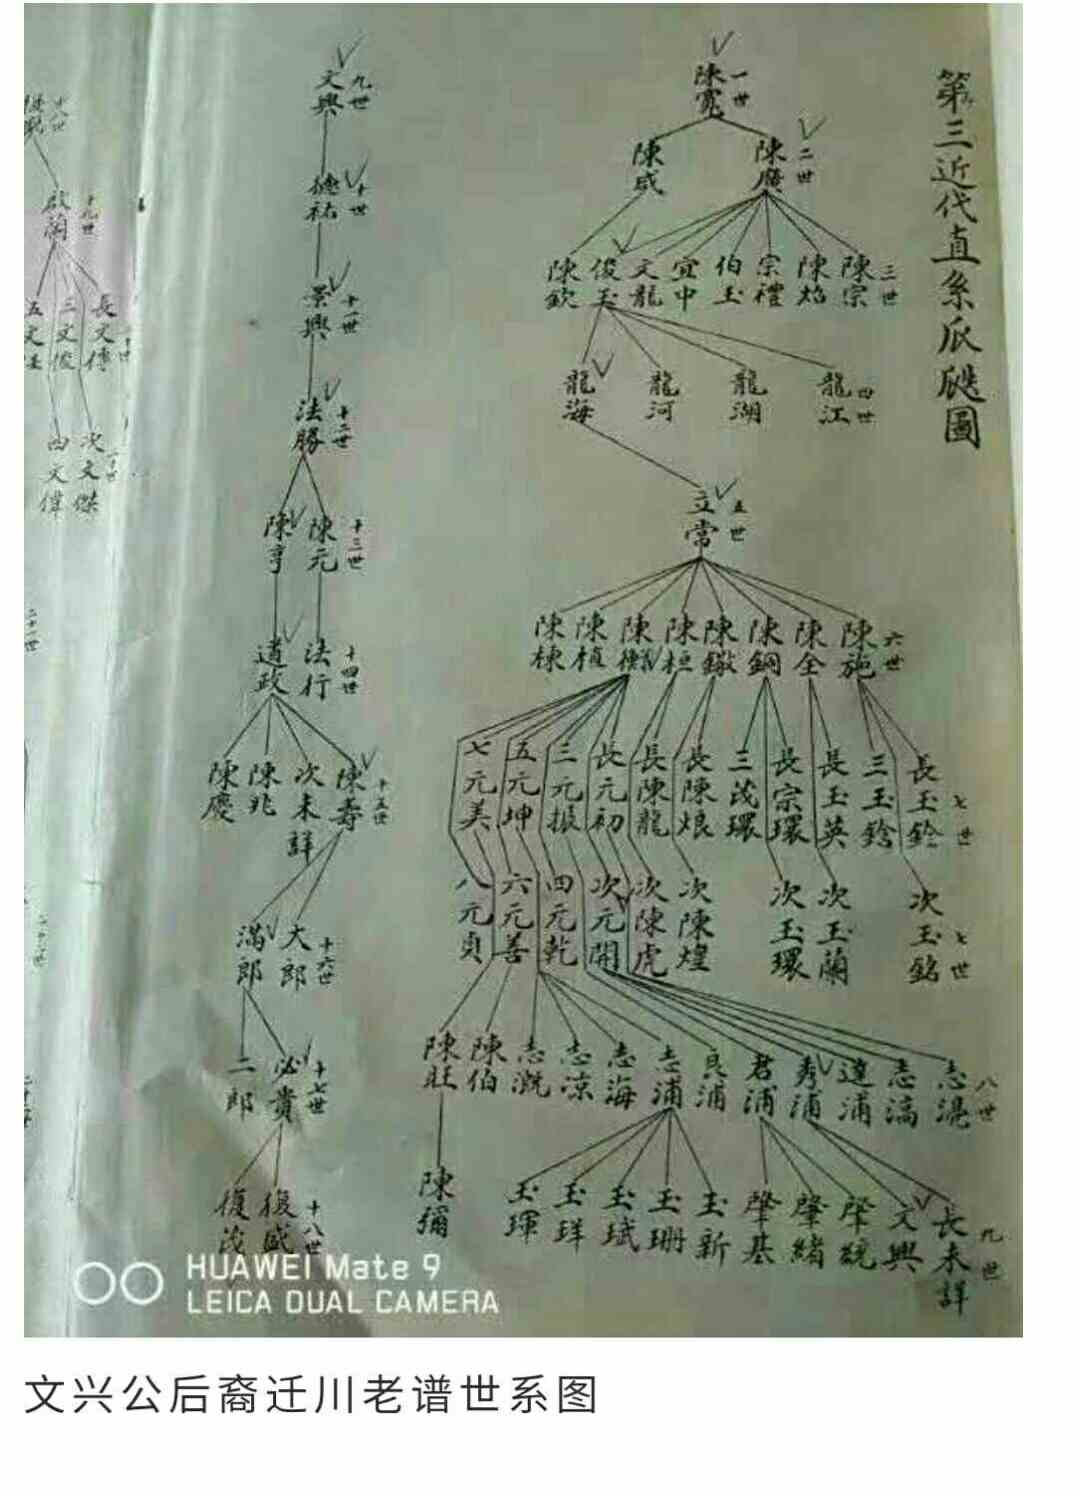 第三近代直系瓜瓞圖
一世
陳寬
二世
陳廣
陳咸
三世
陳宗
陳焰
宗禮
伯玉
宜中
文龍
俊玉
陳欽
四世
龍江
龍湖
龍河
龍海
五世
立常
六世
陳施
陳全
陳鋼
陳鏾
陳桓
陳衡
陳楨
陳棟
七世
長玉鈴
三玉鋡
長玉英
長宗環
三茂環
長陳烺
長陳龍
長元初
三元振
五元坤
七元美
七世
次玉銘
次玉蘭
次玉環
次陳煌
次陳虎
次元開
四元乾
六元善
八元貞
八世
志滆
遠浦
秀浦
君浦
良浦
志浦
志海
志凉
志溉
陳伯
陳旺
九世
長未詳
文興
肇統
肇緒
肇基
玉新
玉珊
玉珷
玉珜
玉琿
陳獮
九世
文興
十世
德祐
十一世
景興
十二世
法勝
十三世
陳元
陳亨
十四世
法行
道政
十五世
陳壽
次未詳
陳兆
陳慶
十六世
大郎
滿郎
十七世
必貴
二郎
十八世
復盛
復茂
十八世
十九世
啟蘭
長文傳
三文俊
次文傑
四文偉
二十一世
HUAWEI Mate 9
LEICA DUAL CAMERA
文兴公后裔迁川老谱世系图